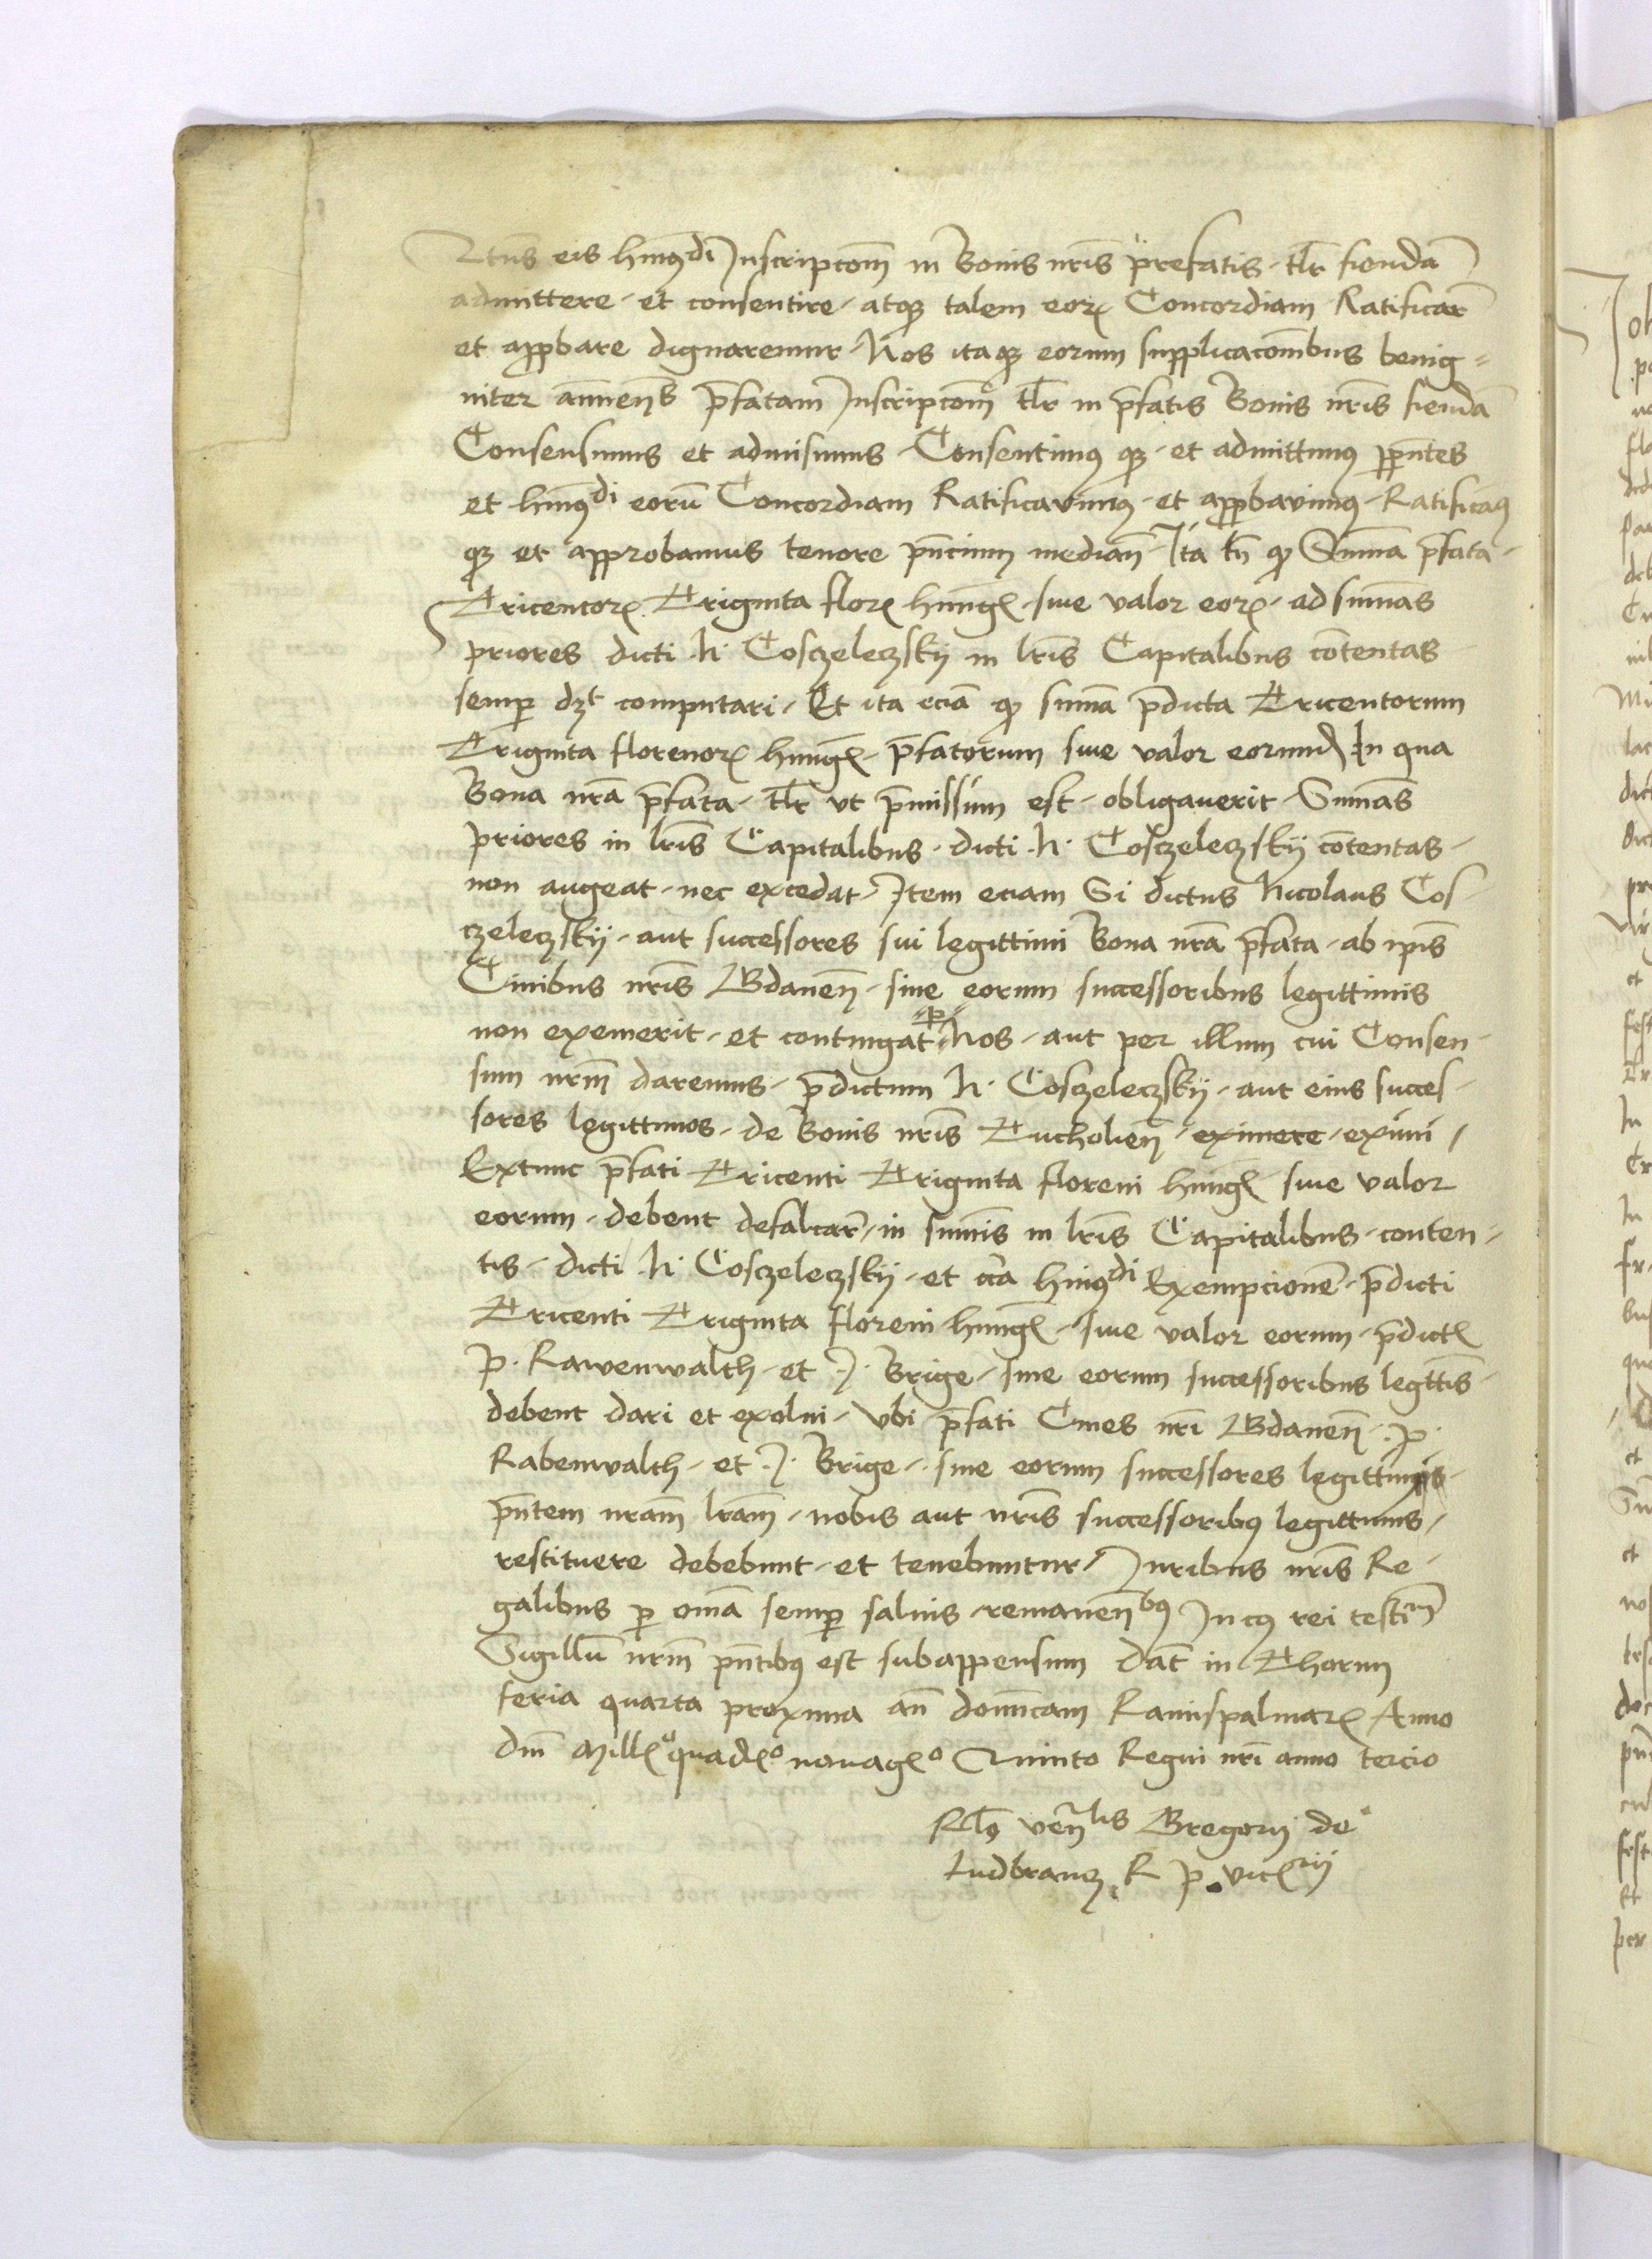 Vtns eis hmōidi Inscripcoēm in Bonis nris prefatis tlr fiendā
admittere et consentire atqꝫ talem eorꝫ Concordiam Ratificare
et apꝓbare dignaremur Nos itaqꝫ eorum supplicacoibus benig=
niter annuenˢ prēfatam Inscripcoēm tlr in prēfatis Bonis nris fiendā
Consensimus et admisimus Consentimꝰ qꝫ et admittimꝰ ppn̄tes
et hmōidi eorū Concordiam Ratificavimꝰ et apꝓbavimꝰ Ratificamꝰ
qꝫ et approbamus tenore pn̄cium median̄ Ita tn̄ qꝫ Summa prēfata
Tricentorꝫ Triginta florꝫ hungꝭ siue valor eorꝫ ad summas
priores dicti N. Cosczeleczskij in lris Capitalibus cōtentas
semper dꝫt computari Et ita eciā qꝫ summa prēdicta Tricentorum
Triginta florenorꝫ hungꝭ prēfatorum siue valor eorundꝫ In qua
Bona nrā prēfata tlr vt prēmissum est obligauerit Summas
priores in lris Capitalibus dicti N. Cosczeleczskij cōtentas
non augeat nec excedat Item eciam Si dictus Nicolaus Cos
czeleczskij aut successores sui legittimi Bona nrā prēfata ab ipis
Ciuibus nris Gdanen̄ siue eorum successoribus legittimis
non exemerit et contingat ꝑ Nos aut per illum cui Consen
sum nrm daremus prēdictum N. Cosczeleczskij aut eius succes
sores legittimos de Bonis nris Tucholien̄ eximere eximi
Extunc prēfati Tricenti Triginta floreni hungꝭ siue valor
eorum debent defalcari in summis in lris Capitalibus conten
tis dicti N. Cosczeleczskij et cca hmōidi Exempcionē prēdicti
Tricenti Triginta floreni hungꝭ siue valor eorum prēdictꝭ
P. Rawenwalth et J. Brige siue eorum successoribus legittis
debent dari et exolui vbi prēfati Ciues nri Gdanen̄ .P.
Rabenwalth et .J. Brige siue eorum successores legittimis
pn̄tem nram lram nobis aut nris successoribꝰ legittimis
restituere debebunt et tenebuntur Juribus nris Re
galibus ꝑ omā semper saluis remanenᵇꝰ In cꝰ rei testiᵐ
Sigillū nrm pn̄tibꝰ est subappensum dat in Thorun
feria quarta proxima an̄ domīcam Ramispalmarꝫ Anno
dm̄ Millꝭᵒ quadꝭᵒ nonagꝭᵒ Quinto Regni nri anno tercio
Relo venlis Gregorij de
Ludbrancz R P vicꝭrij